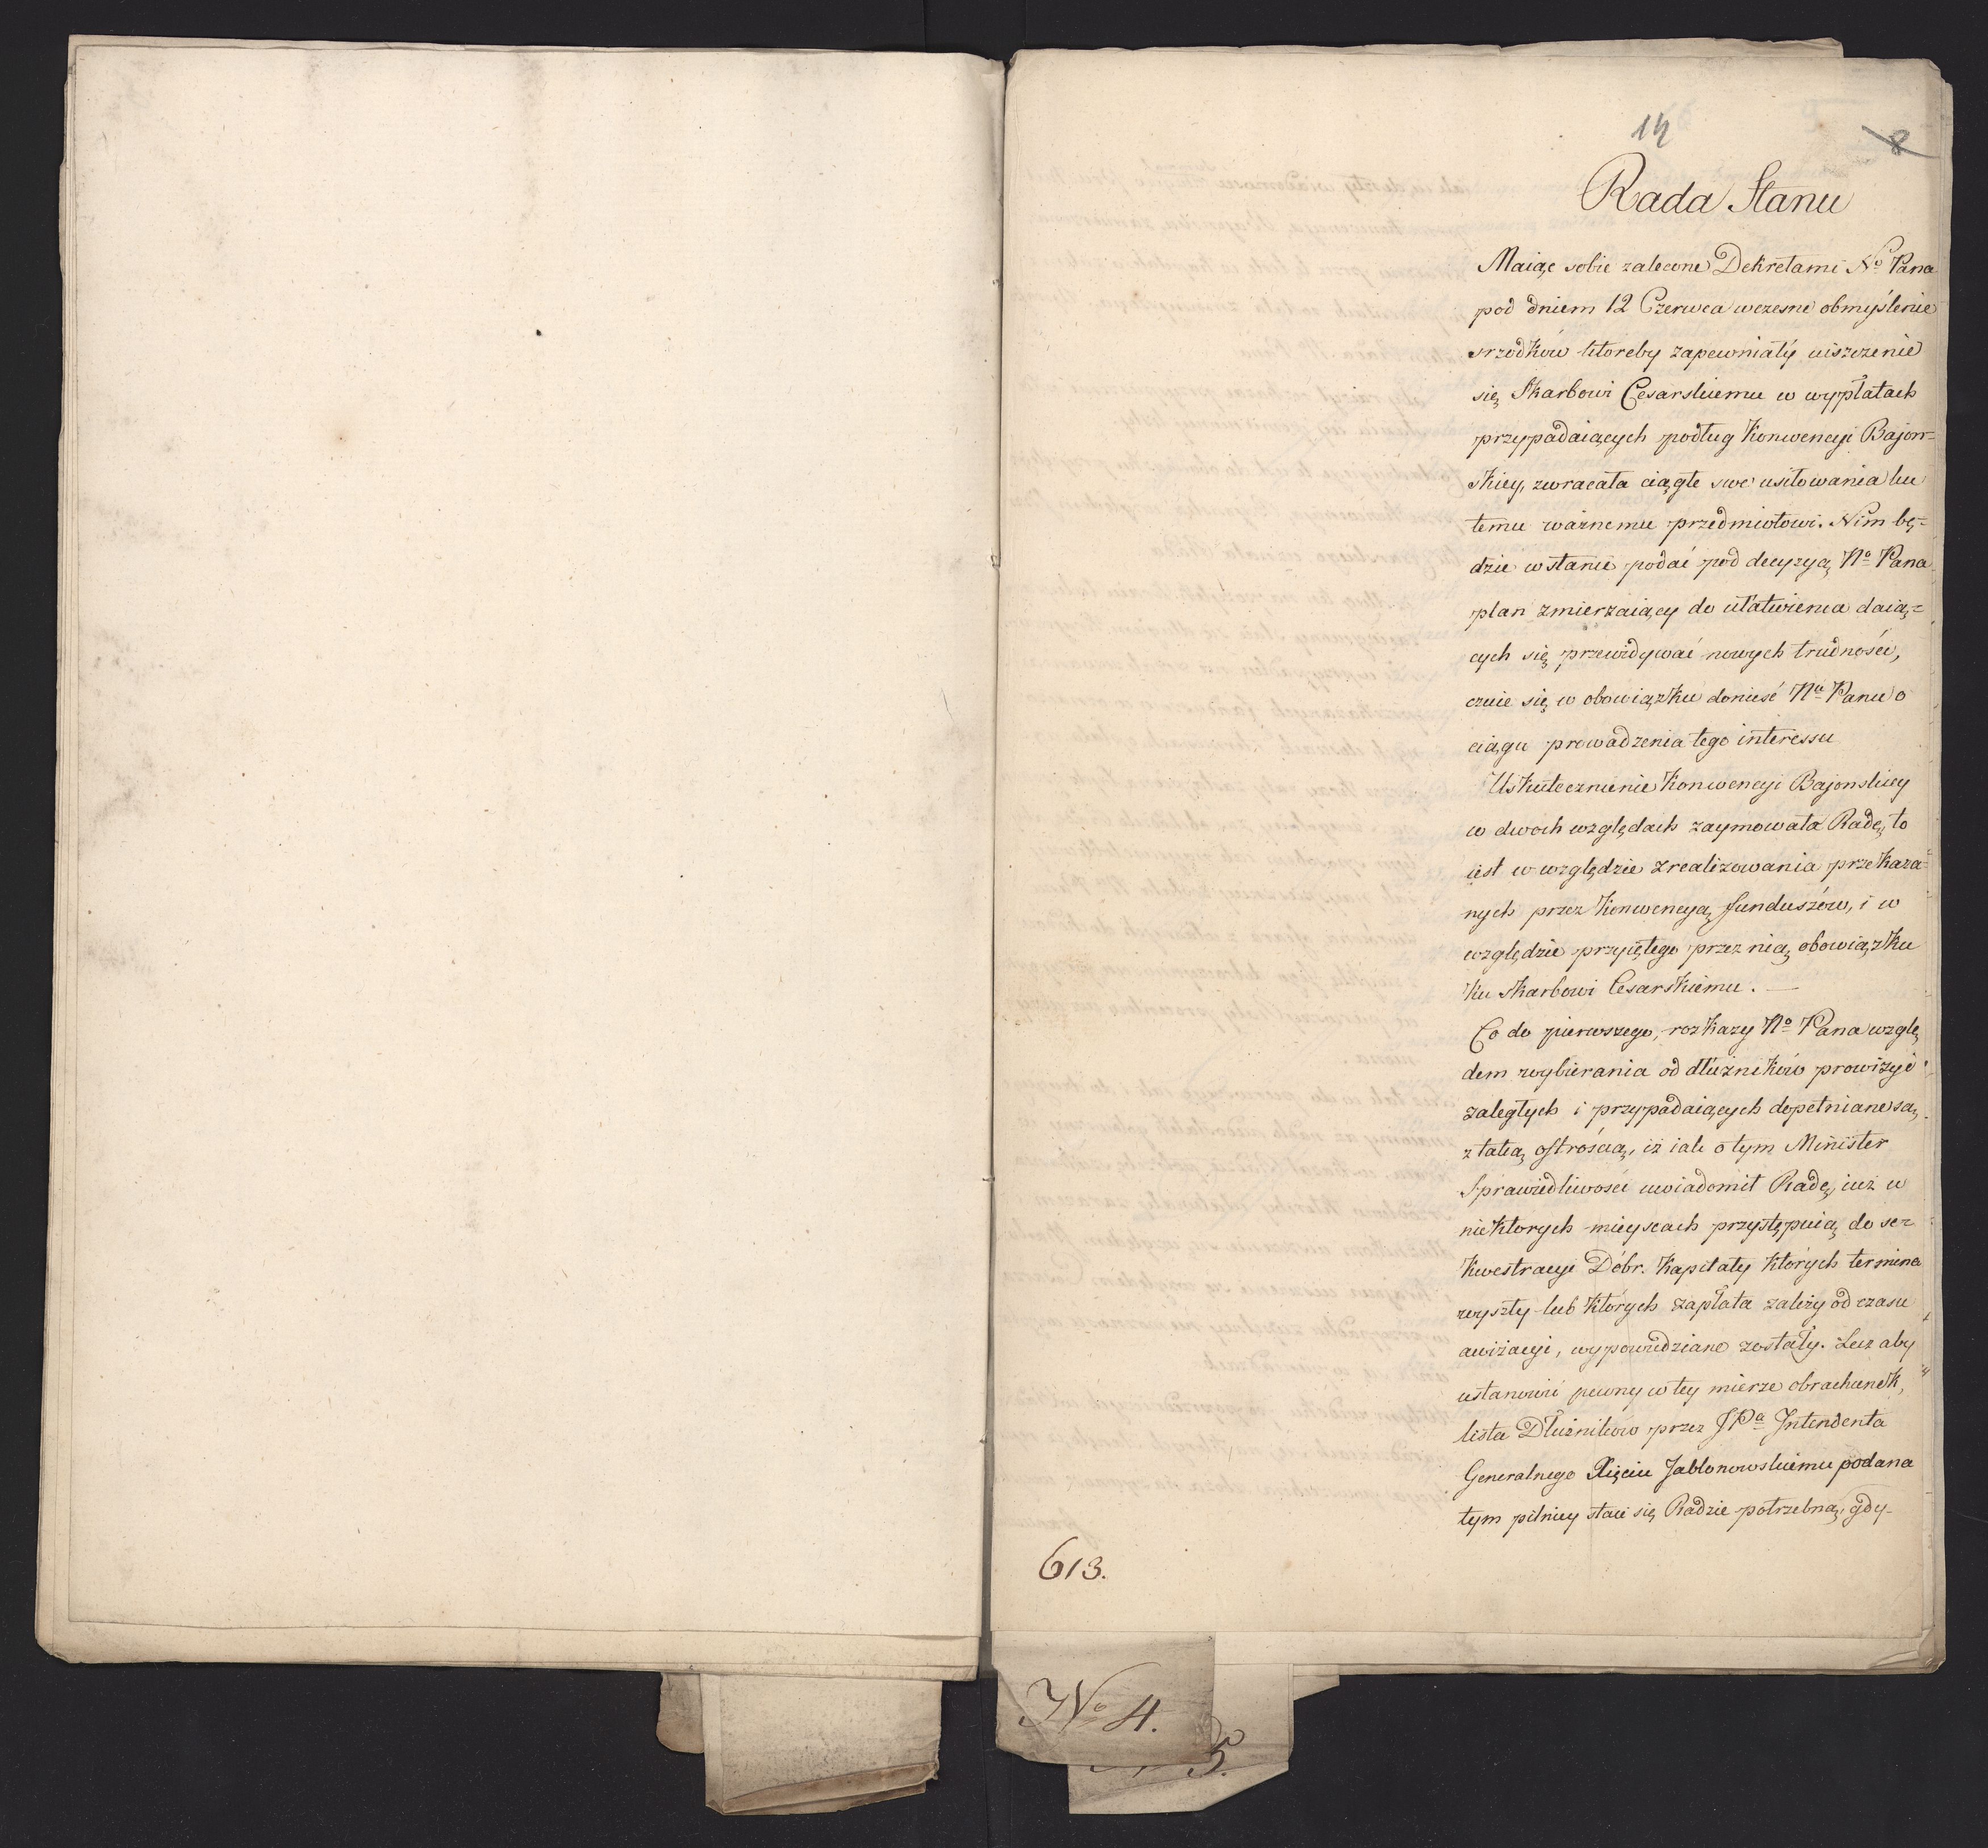 14
8
Rada Stanu
Maiąc sobie zalecone Dekretami No Pana
pod dniem 12 Czerwca wczesne obmyślenie
srzodków ktoreby zapewniały uiszczenie
się Skarbowi Cesarskiemu w wypłatach
przypadaiących podług Konwencyi Bajon=
skiey, zwracała ciągle swe usiłowania ku
temu ważnemu przedmiotowi. Nim bę=
dzie w stanie podać pod decyzyą No Pana
plan zmierzaiący do ułatwienia daią=
cych się przewidywać nowych trudności,
czuie się w obowiązku donieść Nu Panu o
ciągu prowadzenia tego interessu
Uskutecznienie Konwencyi Bajonskiey
w dwoch względach zaymowała Radę, to
iest w względzie zrealizowania przekaza=
nych przez Konwencyą funduszów, i w
względzie przyiętego przez nią obowiązku
ku Skarbowi Cesarskiemu. —
Co do pierwszego, rozkazy No Pana wzglę
dem wybierania od dłużników prowizyi
zaległych i przypadaiących dopełniane są,
z taką ostrością, iż iak o tym Minister
Sprawiedliwości uwiadomił Radę, iuż w
niektorych mieyscach przystępuią do se=
kwestracyi Dóbr. Kapitały których termina
wyszły lub których zapłata zależy od czasu
awizacyi, wypowiedziane zostały. Lecz aby
ustanowić pewny w tey mierze obrachunek,
lista Dłużników przez JPa Intendenta
Generalnego Xięciu Jabłonowskiemu podana
tym pilniey staie się Radzie potrzebną, gdy-
613.
No 4.
5.